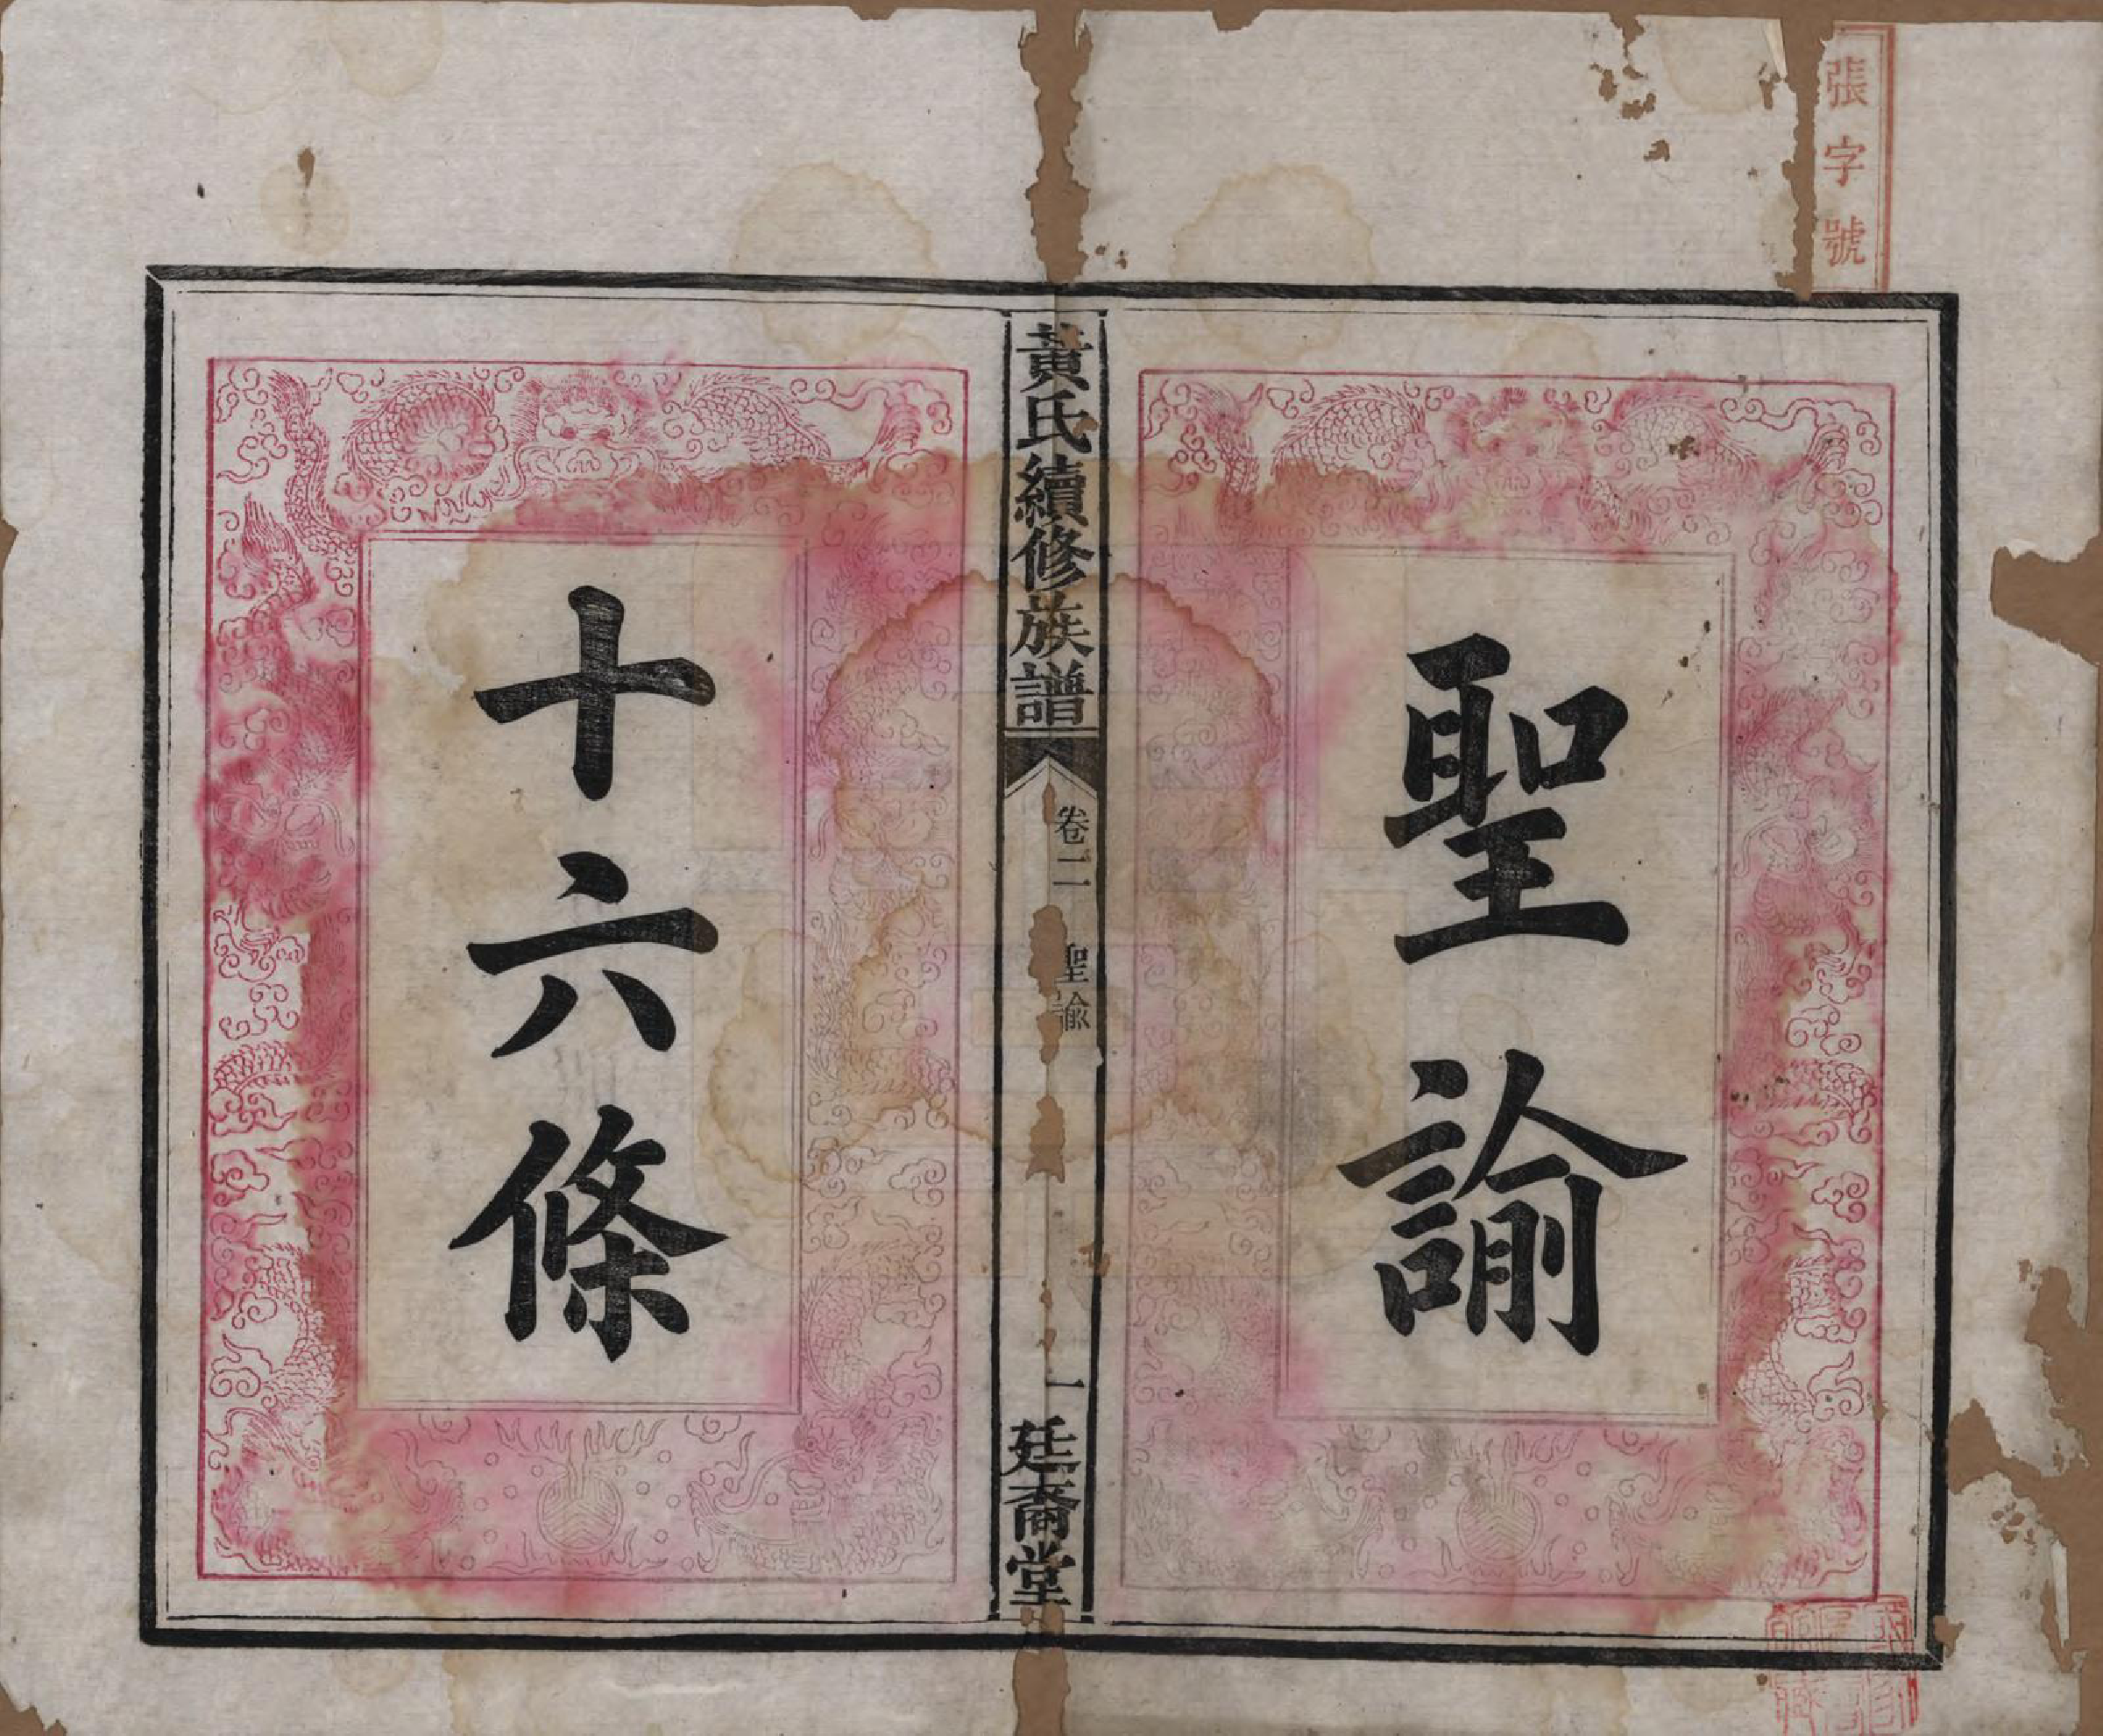 張字號
聖諭
黃氏續修族譜
卷二
聖諭
一
廷裔堂
十六條